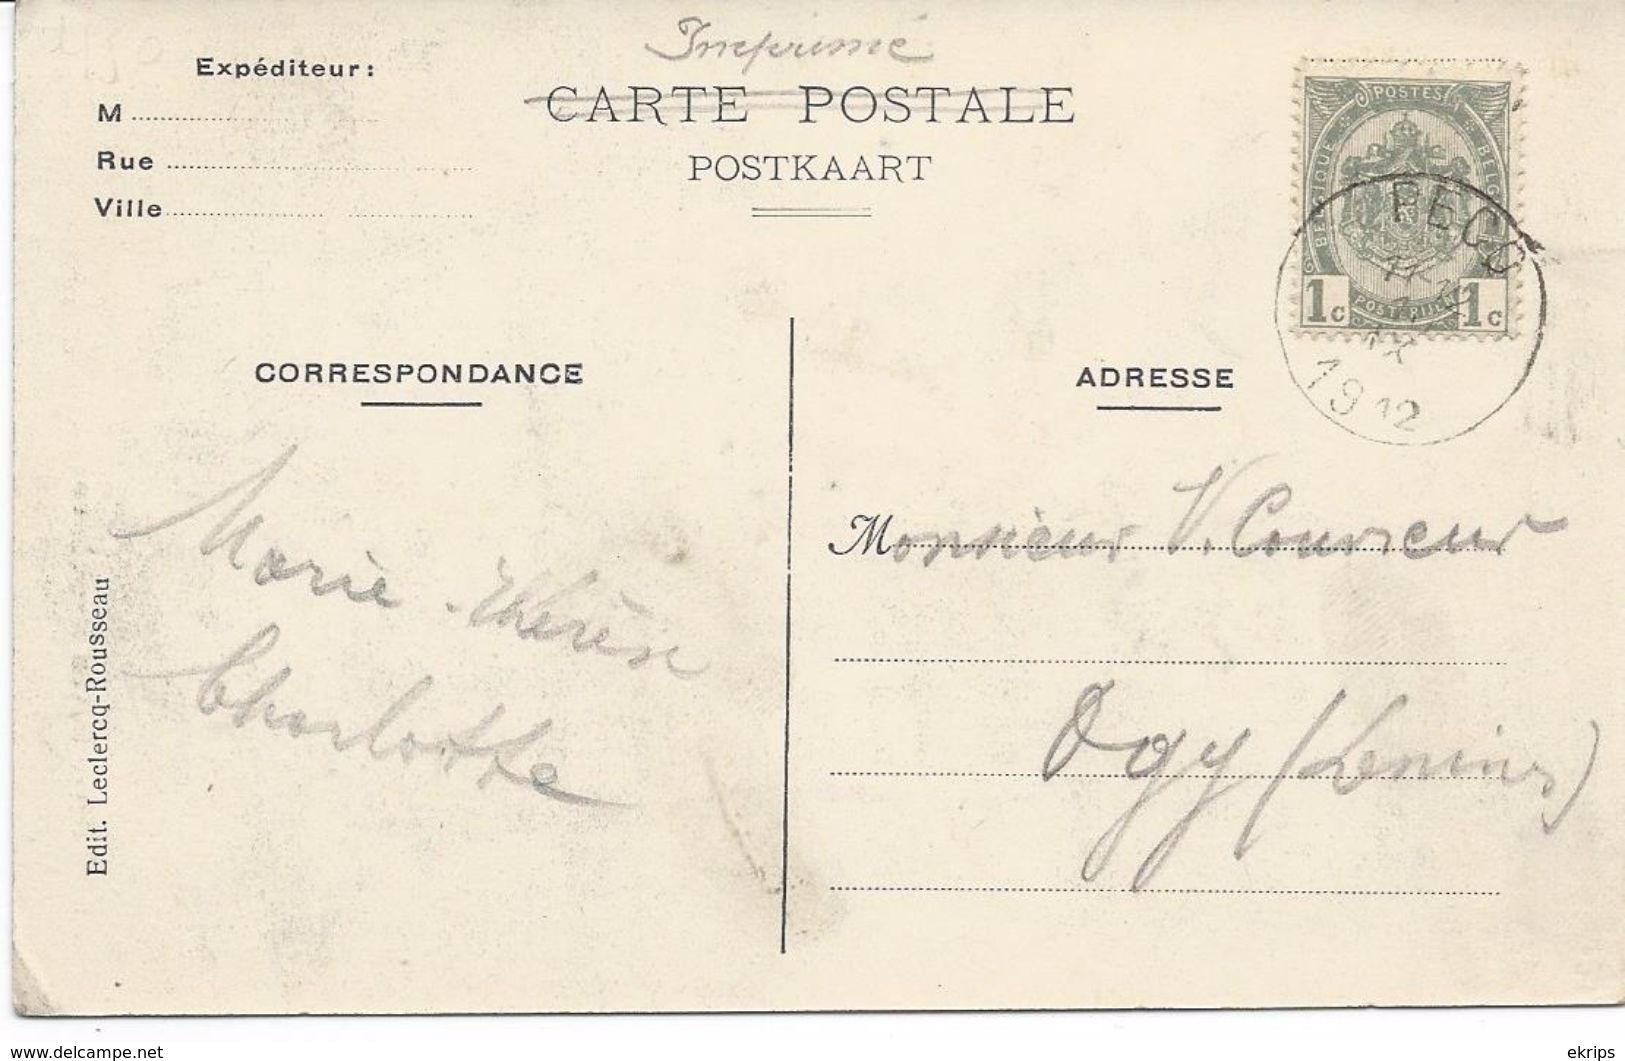 Imprimé
Expéditeur:
CARTE POSTALE
M
POSTKAART
Rue
Ville
POSTES
BELGIQUE
POSTERIJEN
1c 1c
PECQ
1912
CORRESPONDANCE
ADRESSE
Marie-Thérèse
Charlotte
Monsieur V. Couvreur
Ogy (
Edit. Leclercq-Rousseau
www.delcampe.net
ekrips